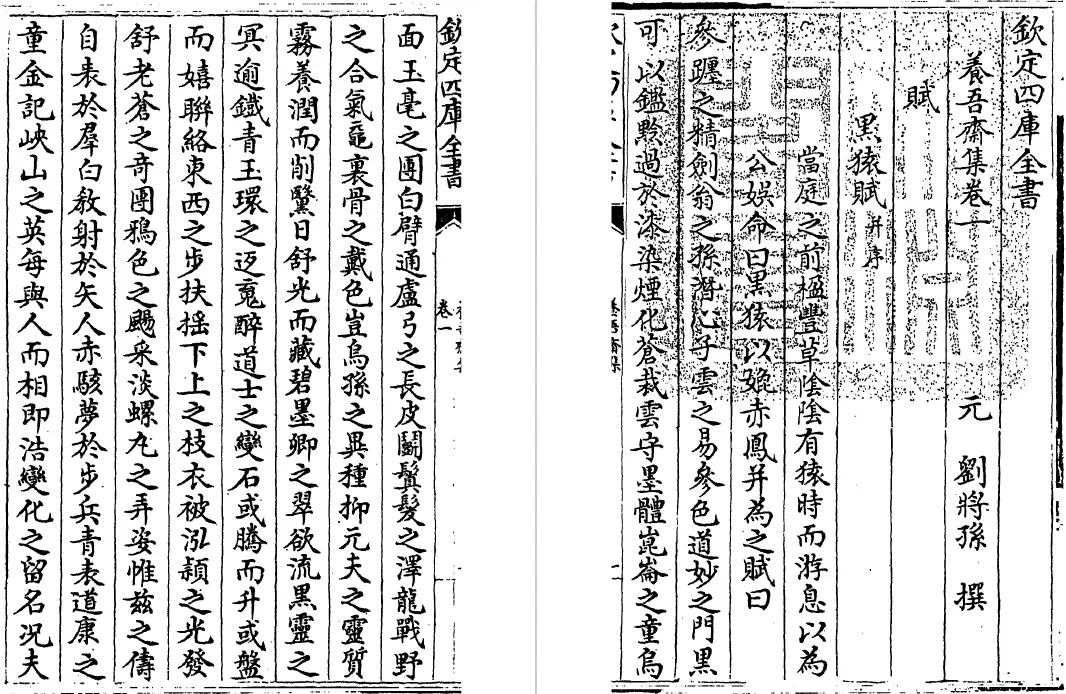 欽定四庫全書
養吾齋集卷一
元 劉將孫 撰
賦
黑猿賦 并序
當庭之前楹豐草陰陰有猿時而游息以為
公娛命曰黑猿以媲赤鳳并為之賦曰
參躔之精劍翁之孫潛心子雲之易參色道妙之門黑
可以鑑黔過於漆染煙化蒼裁雲守墨體崑崙之童烏
卷一
欽定四庫全書
面玉毫之團白臂通盧弓之長皮鬬鬒髮之澤龍戰野
之合氣黿裏骨之戴色豈烏孫之異種抑元夫之靈質
霧養潤而削鷖日舒光而藏碧墨卿之翠欲流黑靈之
冥逾鐡青玉環之返䰟醉道士之變石或騰而升或盤
而嬉聯絡東西之步扶摇下上之枝衣被泓頴之光發
舒老蒼之奇團鴉色之颺采淡螺丸之弄姿惟兹之儔
自表於羣白教射於矢人赤駭夢於步兵青表道康之
童金記峽山之英每與人而相即浩變化之留名况夫